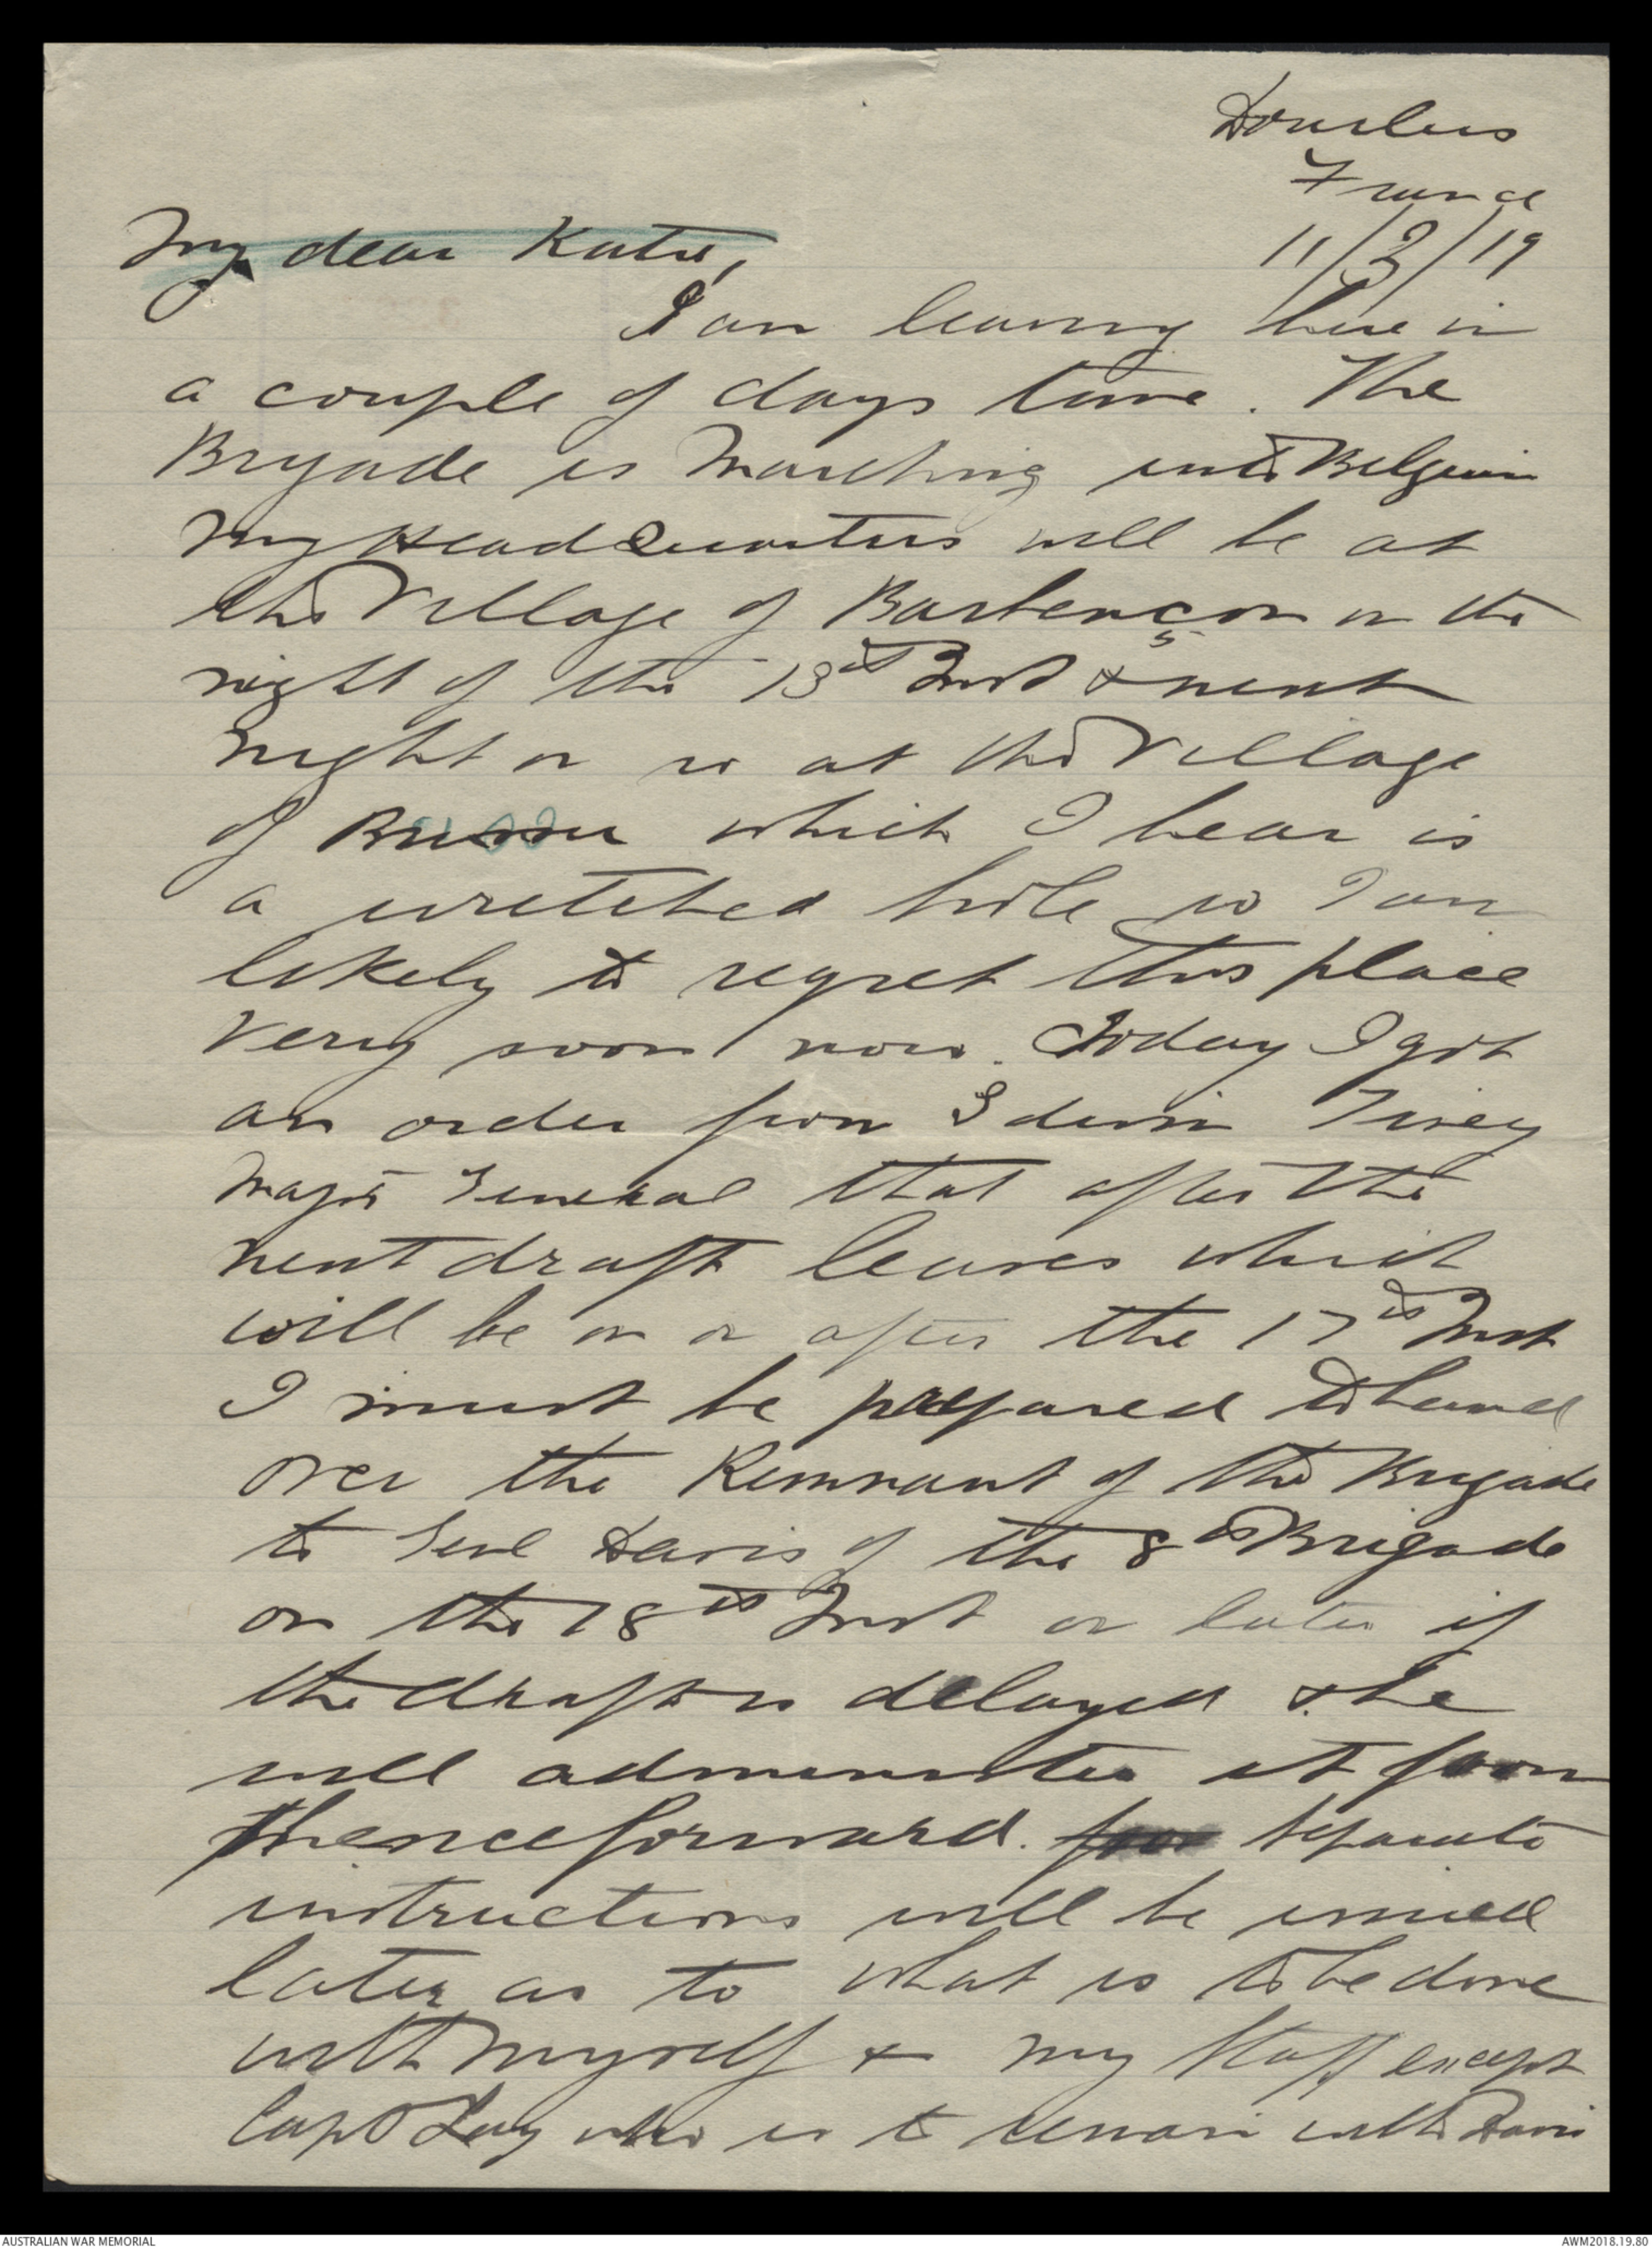 Dourlers
France
11/3/19
My dear Katie,
I am leaving here in
a couple of days time. The
Brigade is Marching into Belgium
My HeadQuarters will be at
the Village of Barbencon on the
night of the 13th Inst & next
night or so at the Village
of which I hear is
a wretched hole so I am
likely to regret this place
very soon now. Today I got
an order from Edwin Tivey
Major General that after the
next draft leaves which
will be on or after the 17th Inst
I must be prepared to hand
over the Remnant of the Brigade
to Genl Davis of the 8th Brigade
on the 18th Inst or later if
the draft is delayed & he
will administer it from
thenceforward. separate
instructions will be issued
later as to what is to be done
with myself & my Staff except
Capt Lay who is to remain with Davis
AUSTRALIAN WAR MEMORIAL
AWM2018.19.80